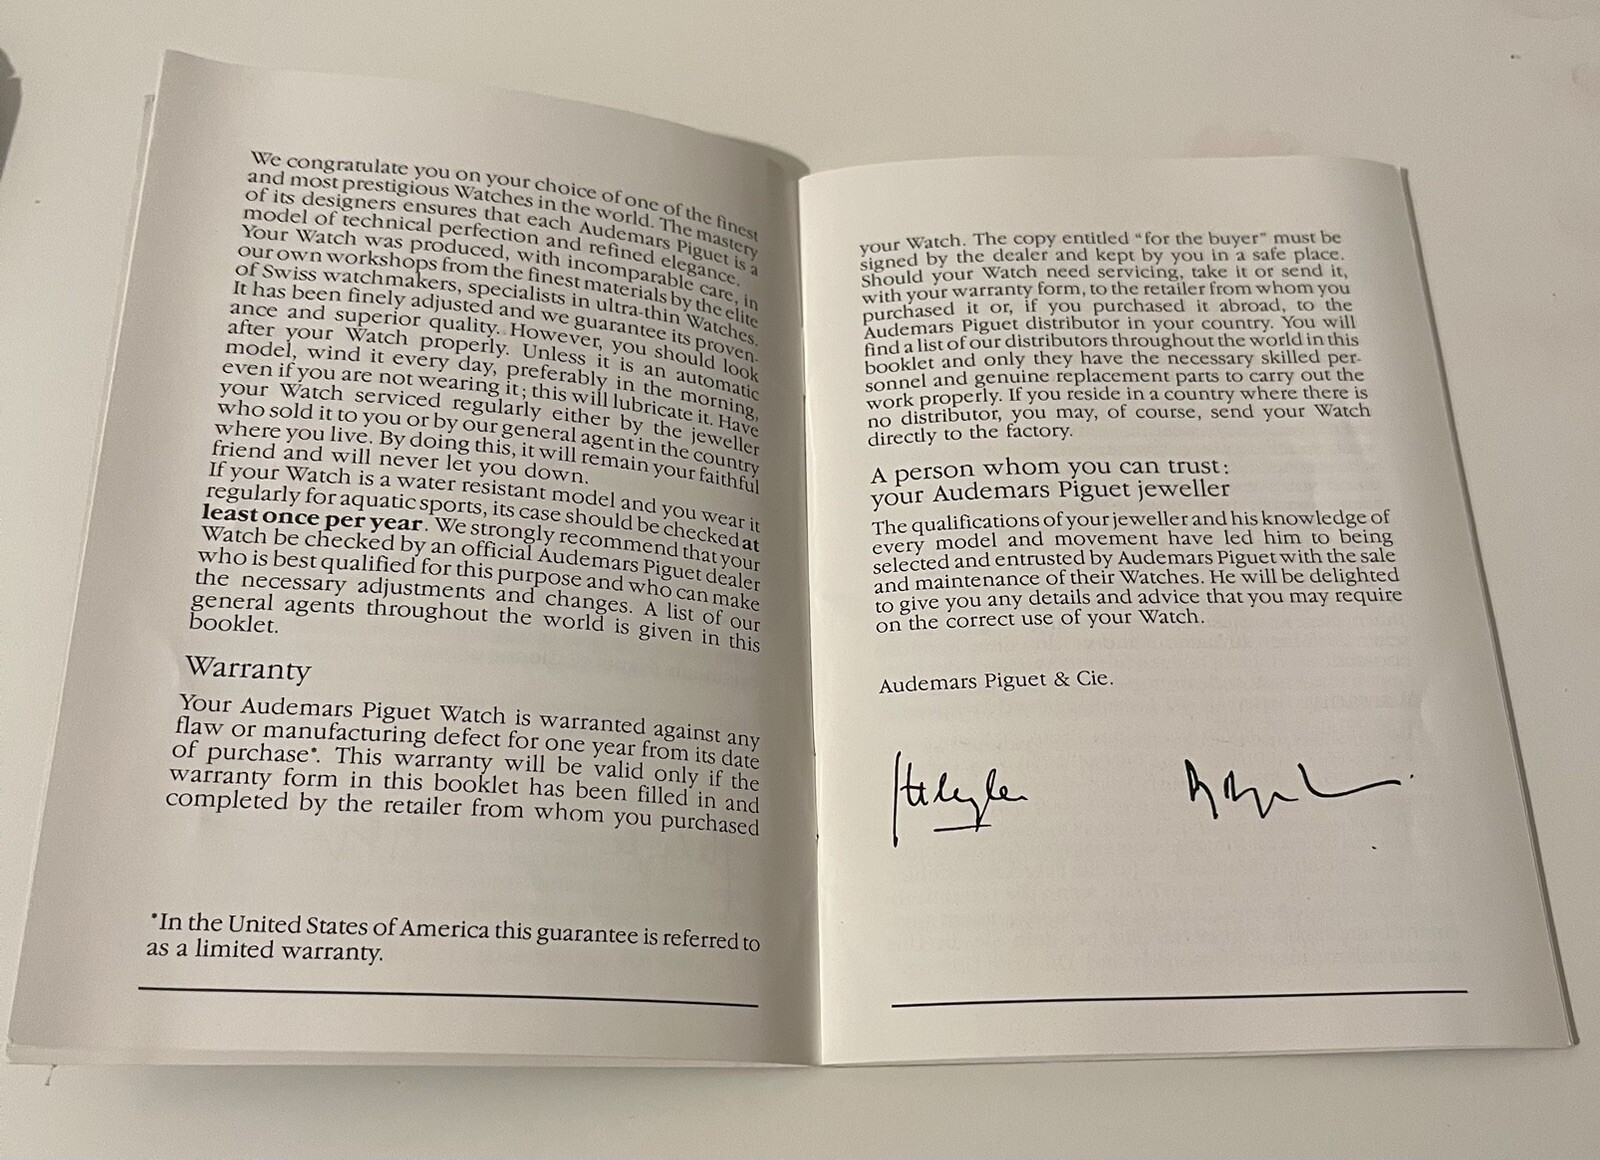 We congratulate you on your choice of one of the finest
and most prestigious Watches in the world. The mastery
of its designers ensures that each Audemars Piguet is a
model of technical perfection and refined elegance.
Your Watch was produced, with incomparable care, in
our own workshops from the finest materials by the elite
of Swiss watchmakers, specialists in ultra-thin Watches.
It has been finely adjusted and we guarantee its proven-
ance and superior quality. However, you should look
after your Watch properly. Unless it is an automatic
model, wind it every day, preferably in the morning,
even if you are not wearing it; this will lubricate it. Have
your Watch serviced regularly either by the jeweller
who sold it to you or by our general agent in the country
where you live. By doing this, it will remain your faithful
friend and will never let you down.
If your Watch is a water resistant model and you wear it
regularly for aquatic sports, its case should be checked at
least once per year. We strongly recommend that your
Watch be checked by an official Audemars Piguet dealer
who is best qualified for this purpose and who can make
the necessary adjustments and changes. A list of our
general agents throughout the world is given in this
booklet.
Warranty
Your Audemars Piguet Watch is warranted against any
flaw or manufacturing defect for one year from its date
of purchase*. This warranty will be valid only if the
warranty form in this booklet has been filled in and
completed by the retailer from whom you purchased
*In the United States of America this guarantee is referred to
as a limited warranty.
your Watch. The copy entitled “for the buyer” must be
signed by the dealer and kept by you in a safe place.
Should your Watch need servicing, take it or send it,
with your warranty form, to the retailer from whom you
purchased it or, if you purchased it abroad, to the
Audemars Piguet distributor in your country. You will
find a list of our distributors throughout the world in this
booklet and only they have the necessary skilled per-
sonnel and genuine replacement parts to carry out the
work properly. If you reside in a country where there is
no distributor, you may, of course, send your Watch
directly to the factory.
A person whom you can trust:
your Audemars Piguet jeweller
The qualifications of your jeweller and his knowledge of
every model and movement have led him to being
selected and entrusted by Audemars Piguet with the sale
and maintenance of their Watches. He will be delighted
to give you any details and advice that you may require
on the correct use of your Watch.
Audemars Piguet & Cie.